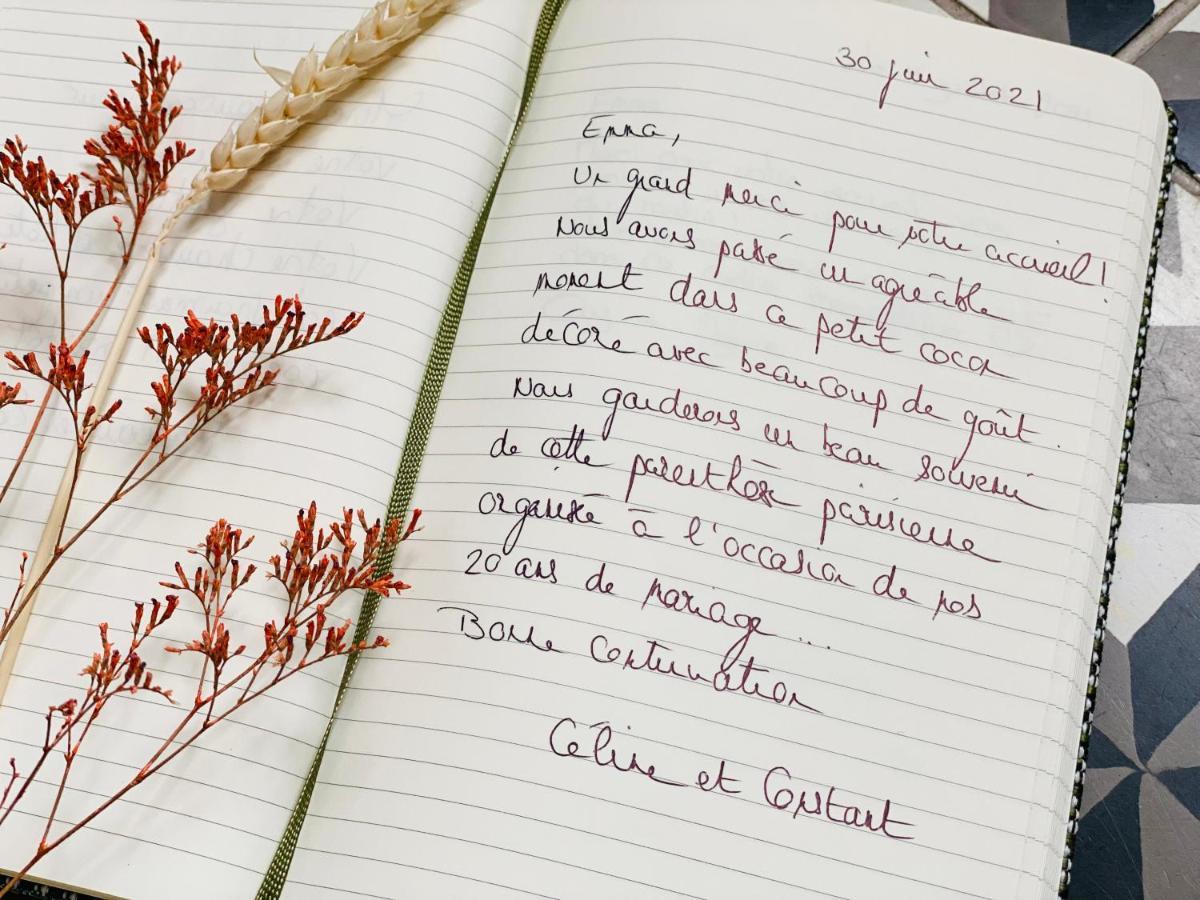 30 juin 2021
Emma,
Un grand merci pour votre accueil !
Nous avons passé un agréable
moment dans ce petit cocon
décoré avec beaucoup de goût.
Nous garderons un beau souvenir
de cette parenthèse parisienne
organisée à l'occasion de nos
20 ans de mariage...
Bonne Continuation
Céline et Constant